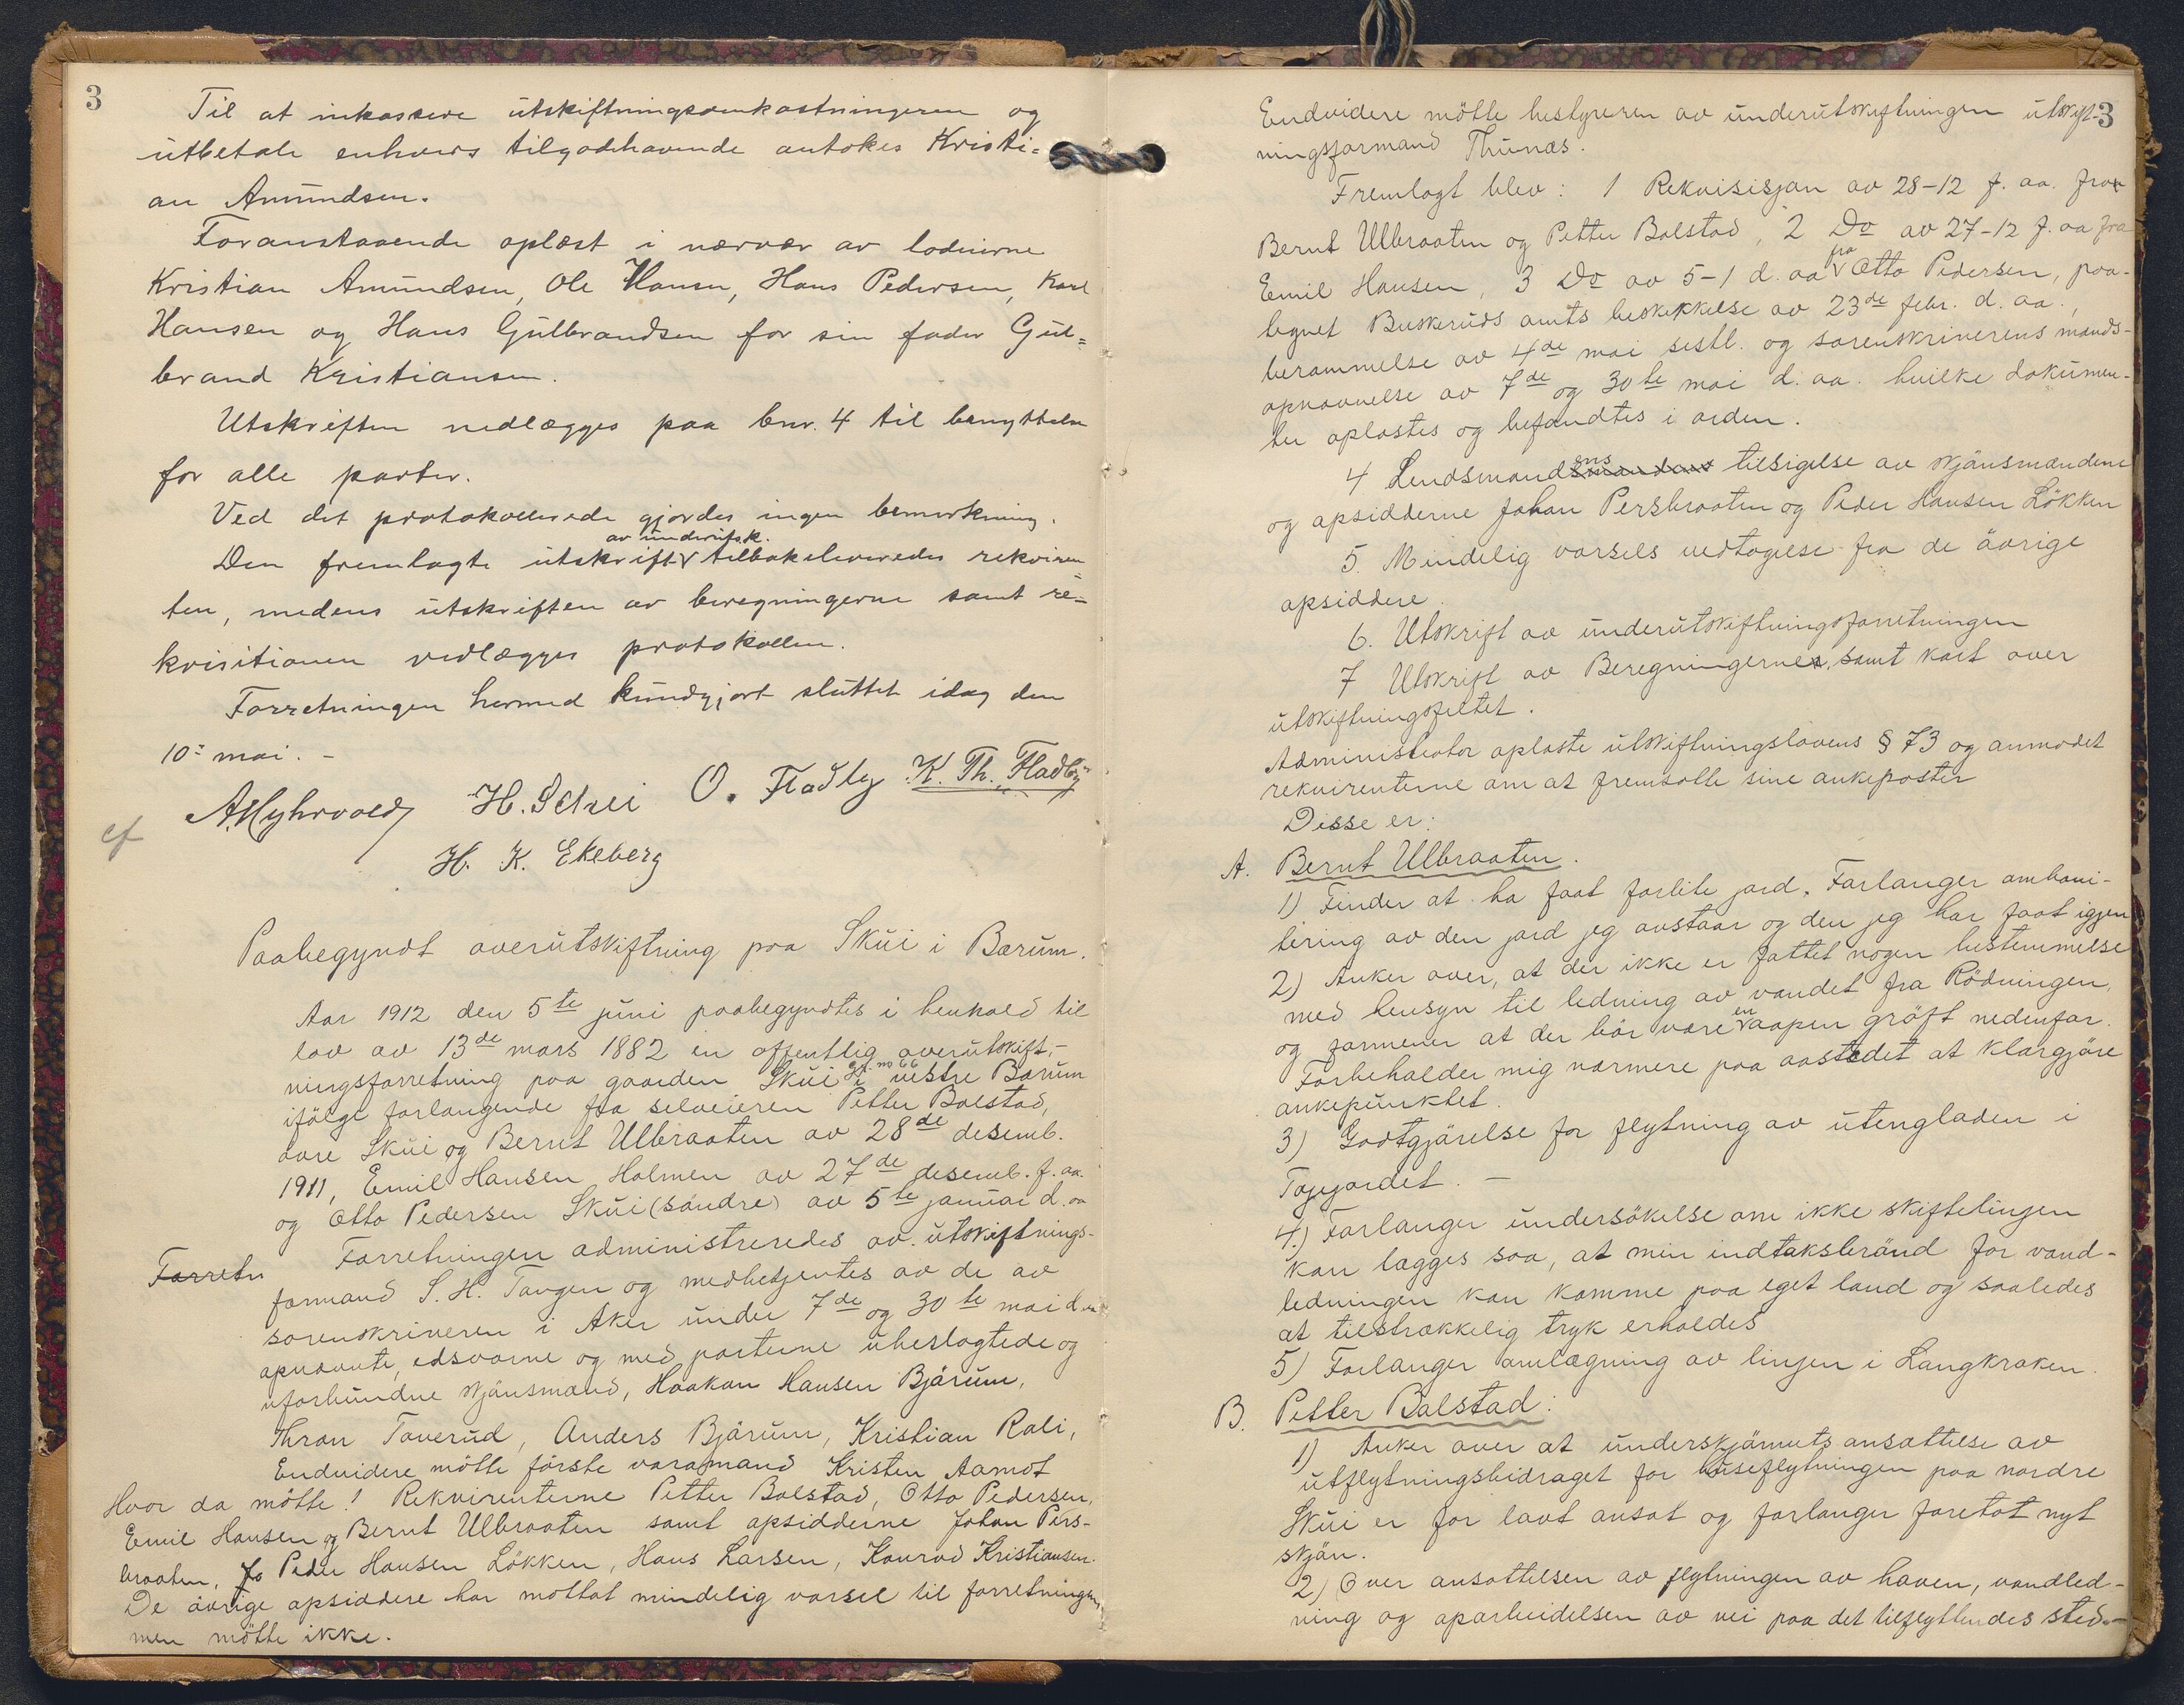 3
Til at inkassere utskiftningsomkostningerne og
utbetale enhvers tilgodehavende antokes Kristi=
an Amundsen.
Foranstaaende oplæst i nærvær av lodeierne
Kristian Amundsen, Ole Hansen, Hans Pedersen, Karl
Hansen og Hans Gulbrandsen for sin fader Gul=
brand Kristiansen.
Utskriften nedlægges paa bnr. 4 til benyttelse
for alle parter.
Ved det protokollerede gjordes ingen bemerkning.
av underutsk.
Den fremlagte utskrift tilbakeleveredes rekviren
ten, medens utskriften av beregningerne samt re=
kvisitionen vedlægges protokollen.
Forretningen hermed kundgjort sluttet idag den
10: mai. -
A. Myhrvold H. Schei O. Fladby K. Th. Fladby
H. K. Ekeberg
Paabegyndt overutskiftning paa Skui i Bærum.
Aar 1912 den 5te juni paabegyndtes i henhold til
lov av 13de mars 1882 en offentlig overutskift-
ningsforretning paa gaarden Skui gr. no 66 i vestre Bærum
ifölge forlangende fra selveieren Petter Bolstad,
övre Skui og Bernt Ulbraaten av 28de desemb.
1911, Emil Hansen Holmen av 27de desemb. f. aa.
og Otto Pedersen Skui (söndre) av 5te januar d. aa
Forretn Forretningen administreredes av utskiftnings-
formand S. H. Tangen og medbetjentes av de av
sorenskriveren i Aker under 7de og 30te mai d. aa
opnævnte, edsvorne og med parterne ubeslegtede og
uforbundne skjönsmænd, Haakon Hansen Bjärum,
Thron Taverud, Anders Bjärum, Kristian Rali,
Endvidere mötte förste varamand Kristen Aamot
Hvor da mötte! Rekvirenterne Petter Bolstad, Otto Pedersen,
Emil Hansen og Bernt Ulbraaten samt opsidderne Johan Pers-
braaten, Jo Peder Hansen Lökken, Hans Larsen, Konrad Kristiansen.
De övrige opsiddere har mottat mindelig varsel til forretningen,
men mötte ikke.
3
Endvidere mötte bestyreren av underutskiftningen utskift-
ningsformand Thunæs.
Fremlagt blev: 1 Rekvisisjon av 28-12 f. aa. fra
Bernt Ulbraaten og Petter Bolstad, 2 Do av 27-12 f. aa fra
Emil Hansen, 3 Do av 5-1 d. aa fra Otto Pedersen, paa-
tegnet Buskeruds amts beskikkelse av 23de febr. d. aa.,
berammelse av 4de mai sestl. og sorenskriverens mands-
opnævnelse av 7de og 30te mai d. aa. hvilke dokumen-
ter oplæstes og befandtes i orden.
4 Lendsmandens tilsigelse av skjönsmændene
og opsidderne Johan Persbraaten og Peder Hansen Lökken
5. Mindelig varsels vedtagelse fra de övrige
opsiddere.
6. Utskrift av underutskiftningsforretningen
7 Utskrift av Beregningerne, samt kart over
utskiftningsfeltet.
Administrator oplæste utskiftningslovens § 73 og anmodet
rekvirenterne om at fremsætte sine ankeposter
Disse er:
A. Bernt Ulbraaten.
1) Finder at ha faat forlite jord. Forlanger omboni-
tering av den jord jeg avstaar og den jeg har faat igjen
2) Anker over, at der ikke er fattet nogen bestemmelse
med hensyn til ledning av vandet fra Rödningen,
og formener at der bör være en aapen gröft nedenfor.
Forbeholder mig nærmere paa aastedet at klargjöre
ankepunktet.
3) Godtgjörelse for flytning av utengladen i
Tajejordet. -
4.) Forlanger undersökelse om ikke skiftelinjen
kan lægges saa, at min indtaksbrönd for vand-
ledningen kan komme paa eget land og saaledes
at tilstrækkelig tryk erholdes
5) Forlanger omlægning av linjen i Langkroken.
B. Petter Bolstad:
1) Anker over at underskjönnets ansættelse av
utflytningsbidraget for huseflytningen paa nordre
Skui er for lavt ansat og forlanger foretat nyt
skjön.
2) Over ansættelsen av flytningen av haven, vandled-
ning og oparbeidelsen av vei paa det tilflyttendes sted.